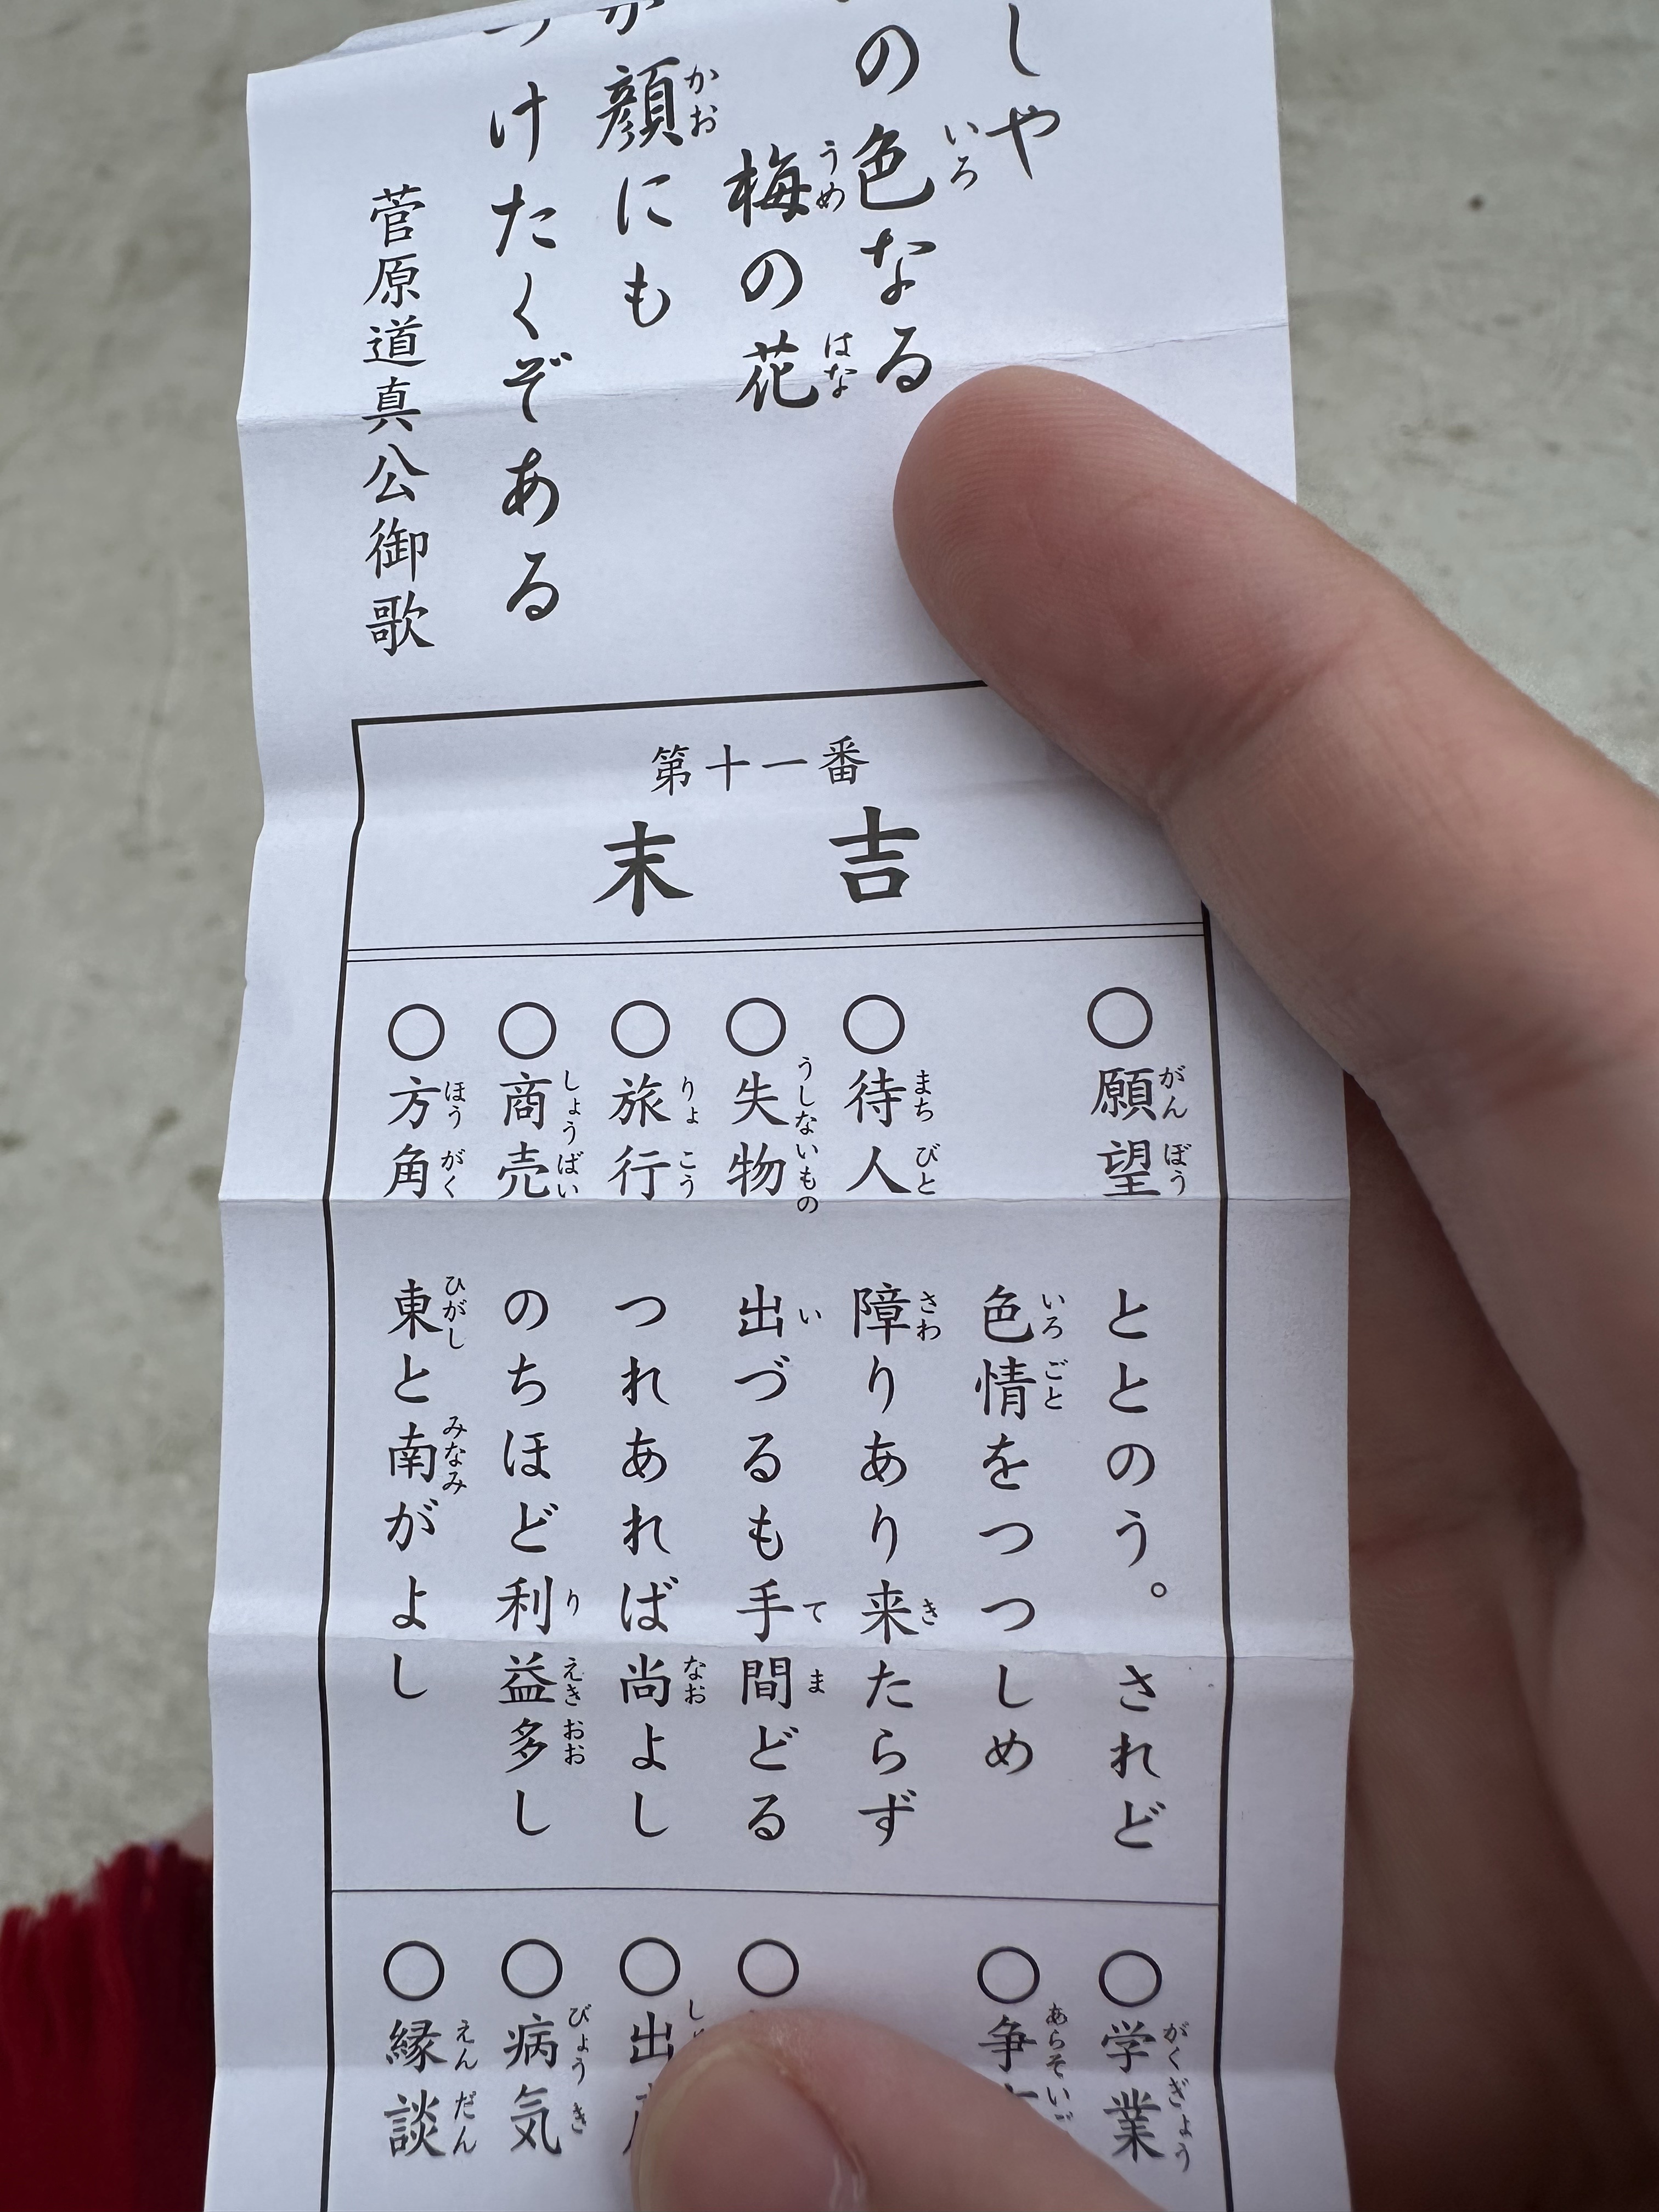 しや
の色なる
梅の花
顔にも
けたくぞある
菅原道真公御歌
第十一番
末吉
○願望 ととのう。されど
色情をつつしめ
○待人 障りあり来たらず
○失物 出づるも手間どる
○旅行 つれあれば尚よし
○商売 のちほど利益多し
○方角 東と南がよし
○学業
○争
○
○出
○病気
○縁談